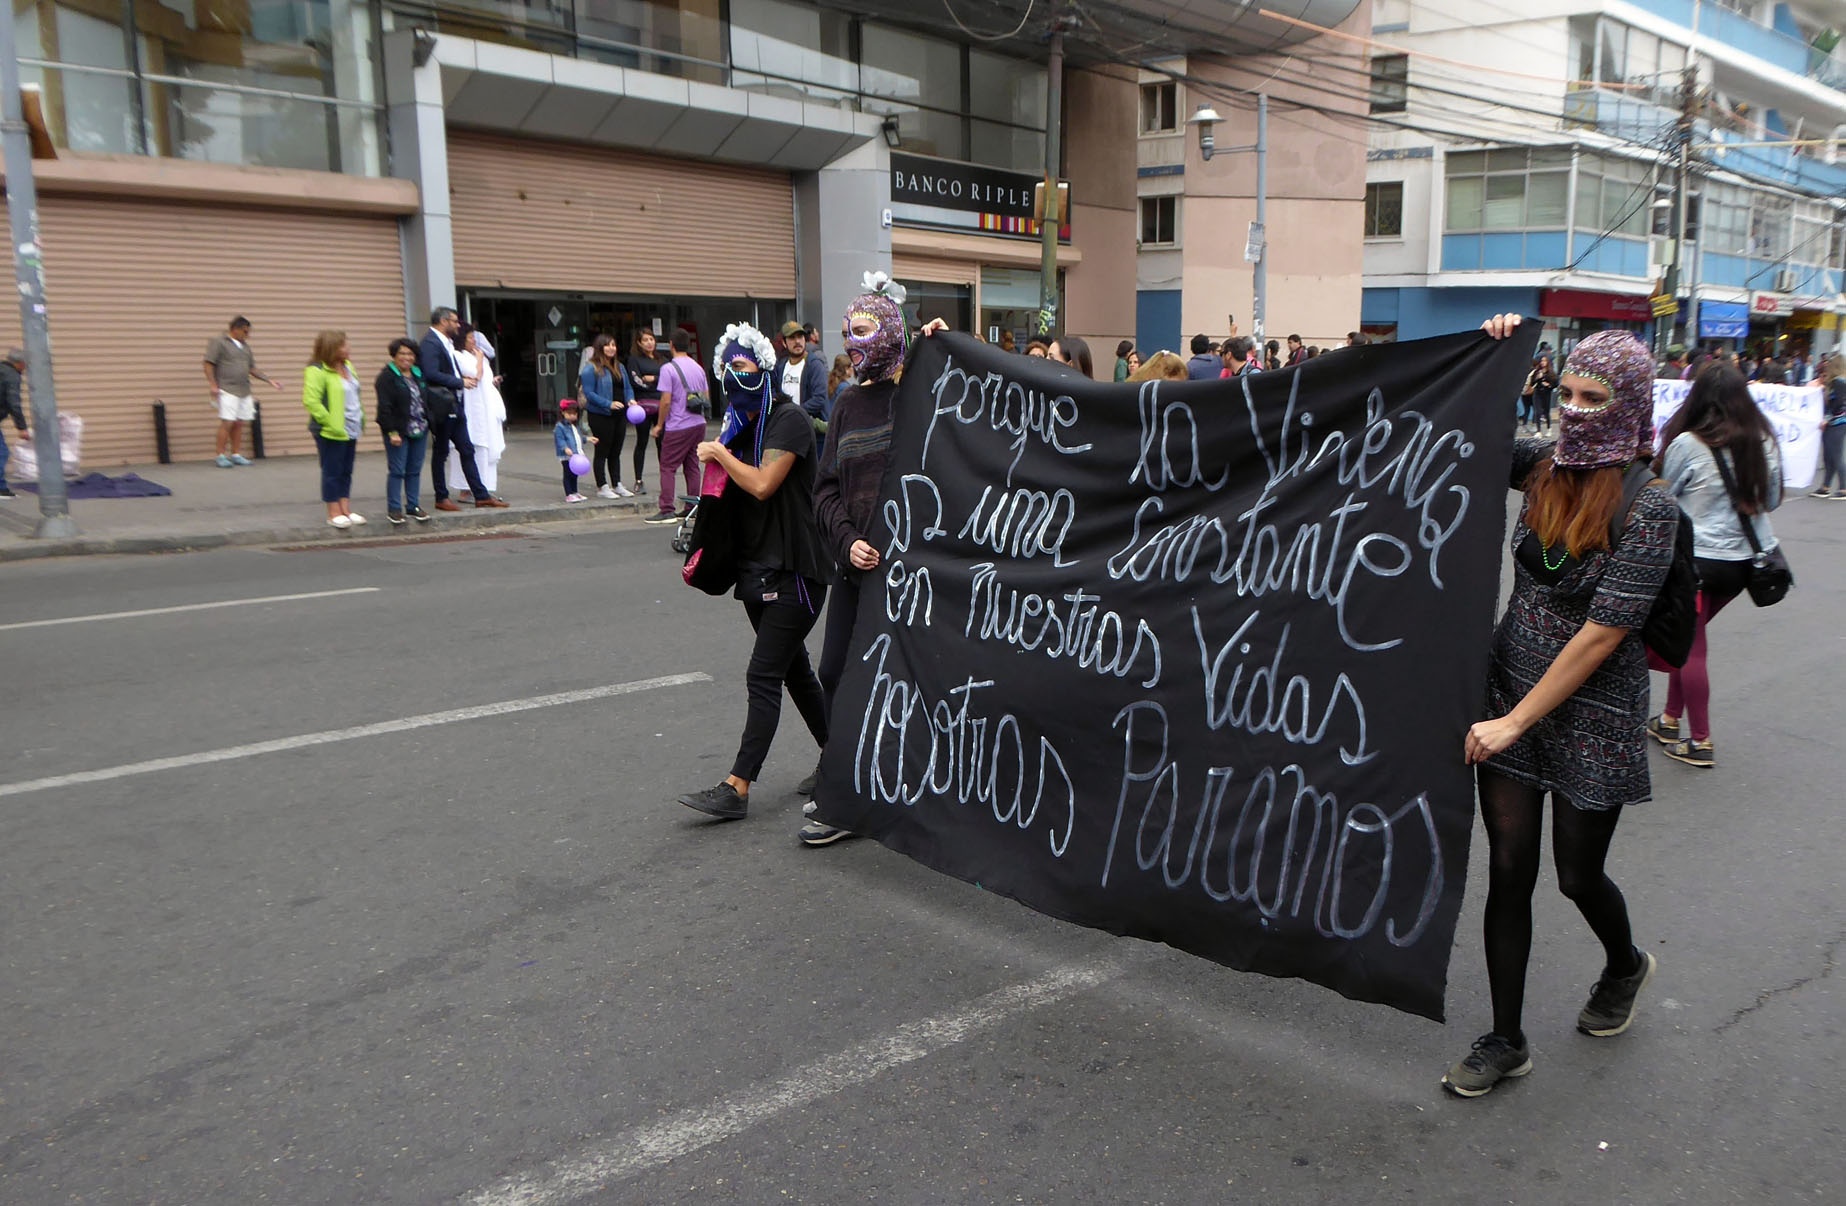 BANCO RIPLE
porque la Violencia
es una Constante
en Nuestras Vidas
Nosotras Paramos
HABLA